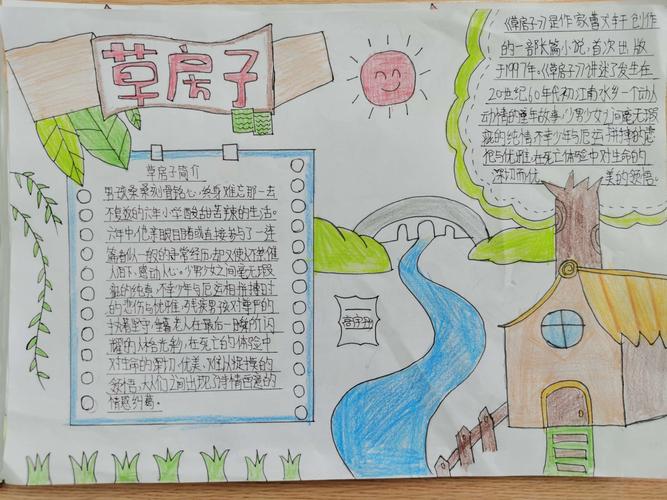 草房子
《草房子》是作家曹文轩创作
的一部长篇小说,首次出版
于1997年。《草房子》讲述了发生在
20世纪60年代初江南水乡一个动人
动情的童年故事,少男少女之间毫无瑕
疵的纯情,不幸少年与厄运拼搏的悲
怆与优雅,在死亡体验中对生命的
深切而优 美的领悟。
草房子简介
男孩桑桑刻骨铭心,终身难忘那一去
不复返的六年小学酸甜苦辣的生活。
六年中,他亲眼目睹或直接参与了一连
看似一般的寻常经历,却又使人不禁催
人泪下、感动人心。少男少女之间毫无瑕
疵的纯真,不幸少年与厄运相拼搏时
的悲伤与优雅,残疾男孩对尊严的
执着坚守,老人在最后一瞬所闪
耀的人格光彩,在死亡的体验中
对生命的深切、优美、难以捉摸的
领悟,大人们之间出现了诗情画意的
情感纠葛。